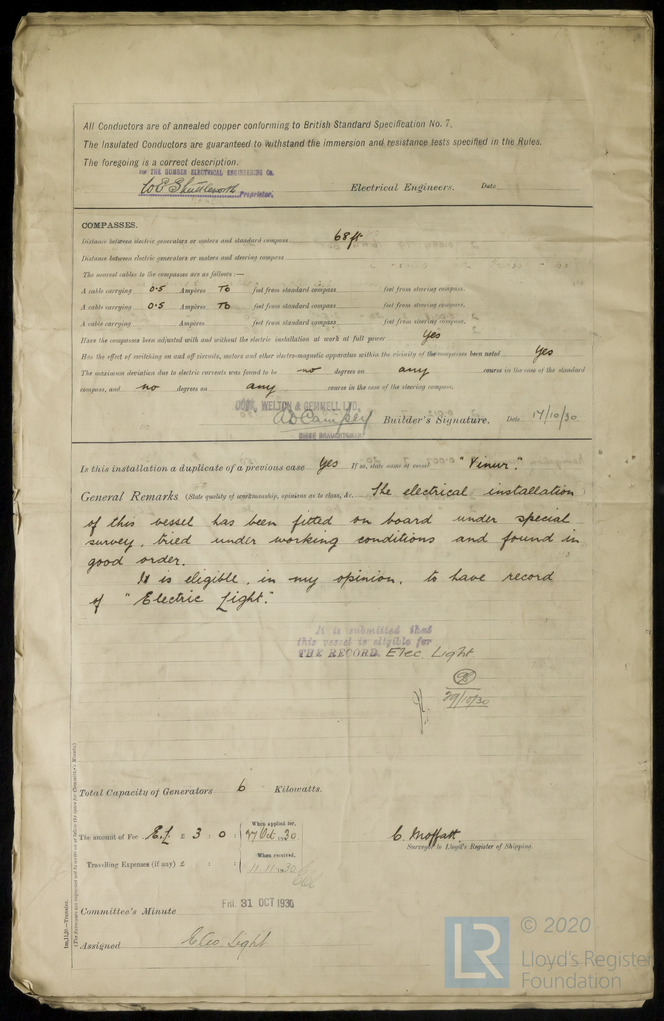 All Conductors are of annealed copper conforming to British Standard Specification No. 7.
The Insulated Conductors are guaranteed to withstand the immersion and resistance tests specified in the Rules.
The foregoing is a correct description.
FOR THE HUMBER ELECTRICAL ENGINEERING Co.
W E Shuttleworth Proprietor. Electrical Engineers. Date
COMPASSES.
Distance between electric generators or motors and standard compass 68 ft
Distance between electric generators or motors and steering compass
The nearest cables to the compasses are as follows:—
A cable carrying 0.5 Ampères To feet from standard compass feet from steering compass.
A cable carrying 0.5 Ampères To feet from standard compass feet from steering compass.
A cable carrying Ampères feet from standard compass feet from steering compass.
Have the compasses been adjusted with and without the electric installation at work at full power Yes
Has the effect of switching on and off circuits, motors and other electro-magnetic apparatus within the vicinity of the compasses been noted Yes
The maximum deviation due to electric currents was found to be no degrees on any course in the case of the standard
compass, and no degrees on any course in the case of the steering compass.
COOK, WELTON & GEMMELL LTD.
Builder's Signature. Date 17/10/30
CHIEF DRAUGHTSMAN
Is this installation a duplicate of a previous case Yes If so, state name of vessel
General Remarks (State quality of workmanship, opinions as to class, &c. The electrical installation
of this vessel has been fitted on board under special
survey, tried under working conditions and found in
good order.
It is eligible, in my opinion, to have record
of "Electric Light."
It is submitted that
this vessel is eligible for
THE RECORD. Elec Light
29/10/30
Total Capacity of Generators 6 Kilowatts.
The amount of Fee E.L. £ 3 : 0 : When applied for, 27 Oct 1930
Travelling Expenses (if any) £ : : When received, 11.11.1930
C. Moffatt
Surveyor to Lloyd's Register of Shipping.
Committee's Minute FRI. 31 OCT 1930
Assigned Elec Light
1m,11,30.—Transfer.
© 2020
LR
Lloyd's Register
Foundation